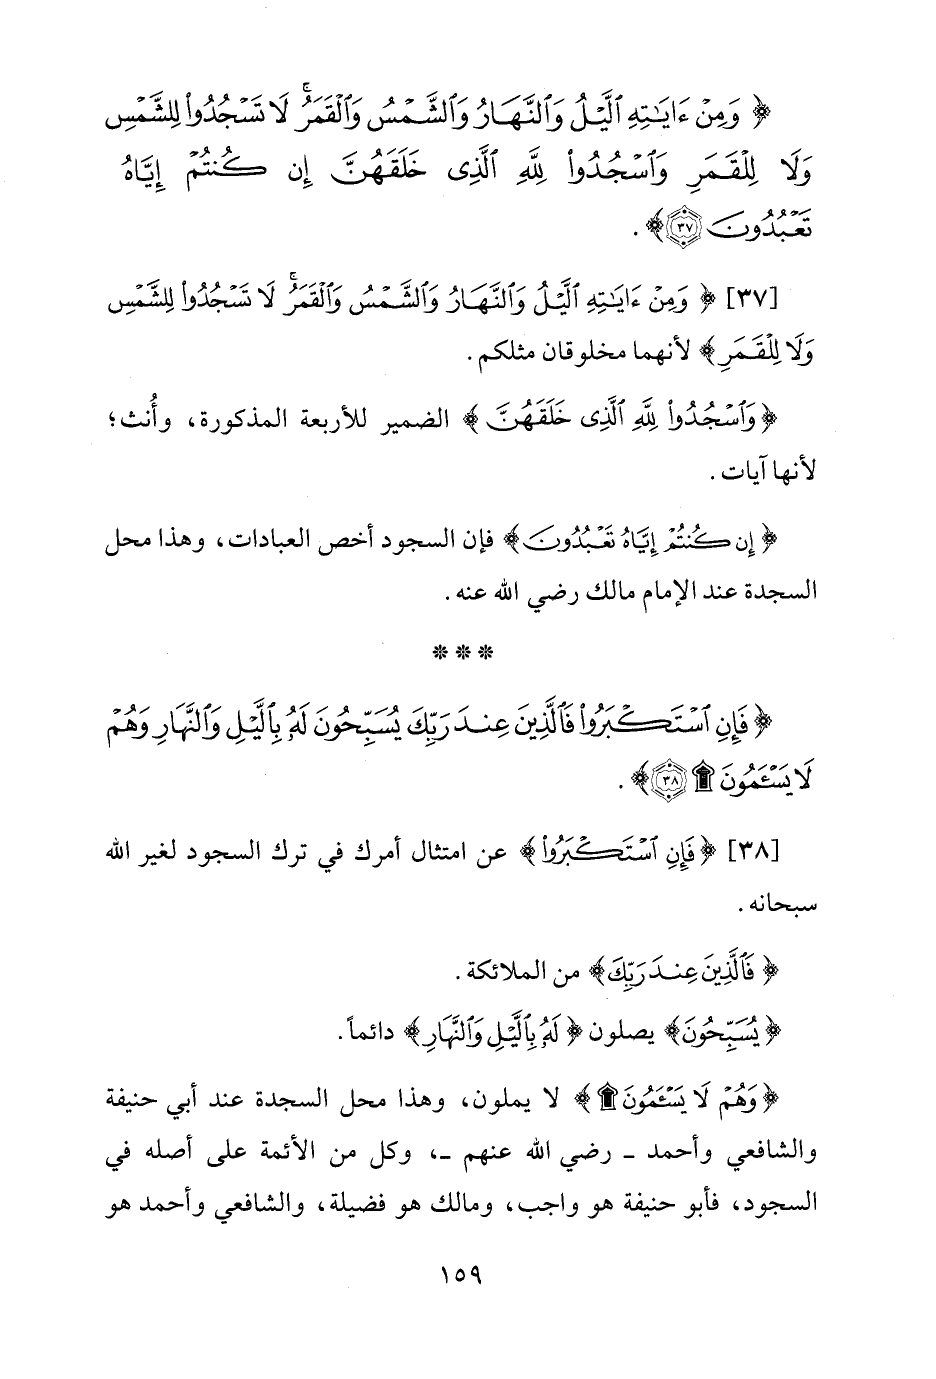 ﴿ وَمِنْ ءَايَٰتِهِ ٱلَّيْلُ وَٱلنَّهَارُ وَٱلشَّمْسُ وَٱلْقَمَرُ ۚ لَا تَسْجُدُوا۟ لِلشَّمْسِ
وَلَا لِلْقَمَرِ وَٱسْجُدُوا۟ لِلَّهِ ٱلَّذِى خَلَقَهُنَّ إِن كُنتُمْ إِيَّاهُ
تَعْبُدُونَ ٣٧ ﴾ .
[٣٧] ﴿ وَمِنْ ءَايَٰتِهِ ٱلَّيْلُ وَٱلنَّهَارُ وَٱلشَّمْسُ وَٱلْقَمَرُ ۚ لَا تَسْجُدُوا۟ لِلشَّمْسِ
وَلَا لِلْقَمَرِ ﴾ لأنهما مخلوقان مثلكم .
﴿ وَٱسْجُدُوا۟ لِلَّهِ ٱلَّذِى خَلَقَهُنَّ ﴾ الضمير للأربعة المذكورة، وأُنث؛
لأنها آيات .
﴿ إِن كُنتُمْ إِيَّاهُ تَعْبُدُونَ ﴾ فإن السجود أخص العبادات، وهذا محل
السجدة عند الإمام مالك رضي الله عنه .
* * *
﴿ فَإِنِ ٱسْتَكْبَرُوا۟ فَٱلَّذِينَ عِندَ رَبِّكَ يُسَبِّحُونَ لَهُۥ بِٱلَّيْلِ وَٱلنَّهَارِ وَهُمْ
لَا يَسْـَٔمُونَ ۩ ٣٨ ﴾ .
[٣٨] ﴿ فَإِنِ ٱسْتَكْبَرُوا۟ ﴾ عن امتثال أمرك في ترك السجود لغير الله
سبحانه .
﴿ فَٱلَّذِينَ عِندَ رَبِّكَ ﴾ من الملائكة .
﴿ يُسَبِّحُونَ ﴾ يصلون ﴿ لَهُۥ بِٱلَّيْلِ وَٱلنَّهَارِ ﴾ دائماً .
﴿ وَهُمْ لَا يَسْـَٔمُونَ ۩ ﴾ لا يملون، وهذا محل السجدة عند أبي حنيفة
والشافعي وأحمد ـ رضي الله عنهم ـ، وكل من الأئمة على أصله في
السجود، فأبو حنيفة هو واجب، ومالك هو فضيلة، والشافعي وأحمد هو
١٥٩